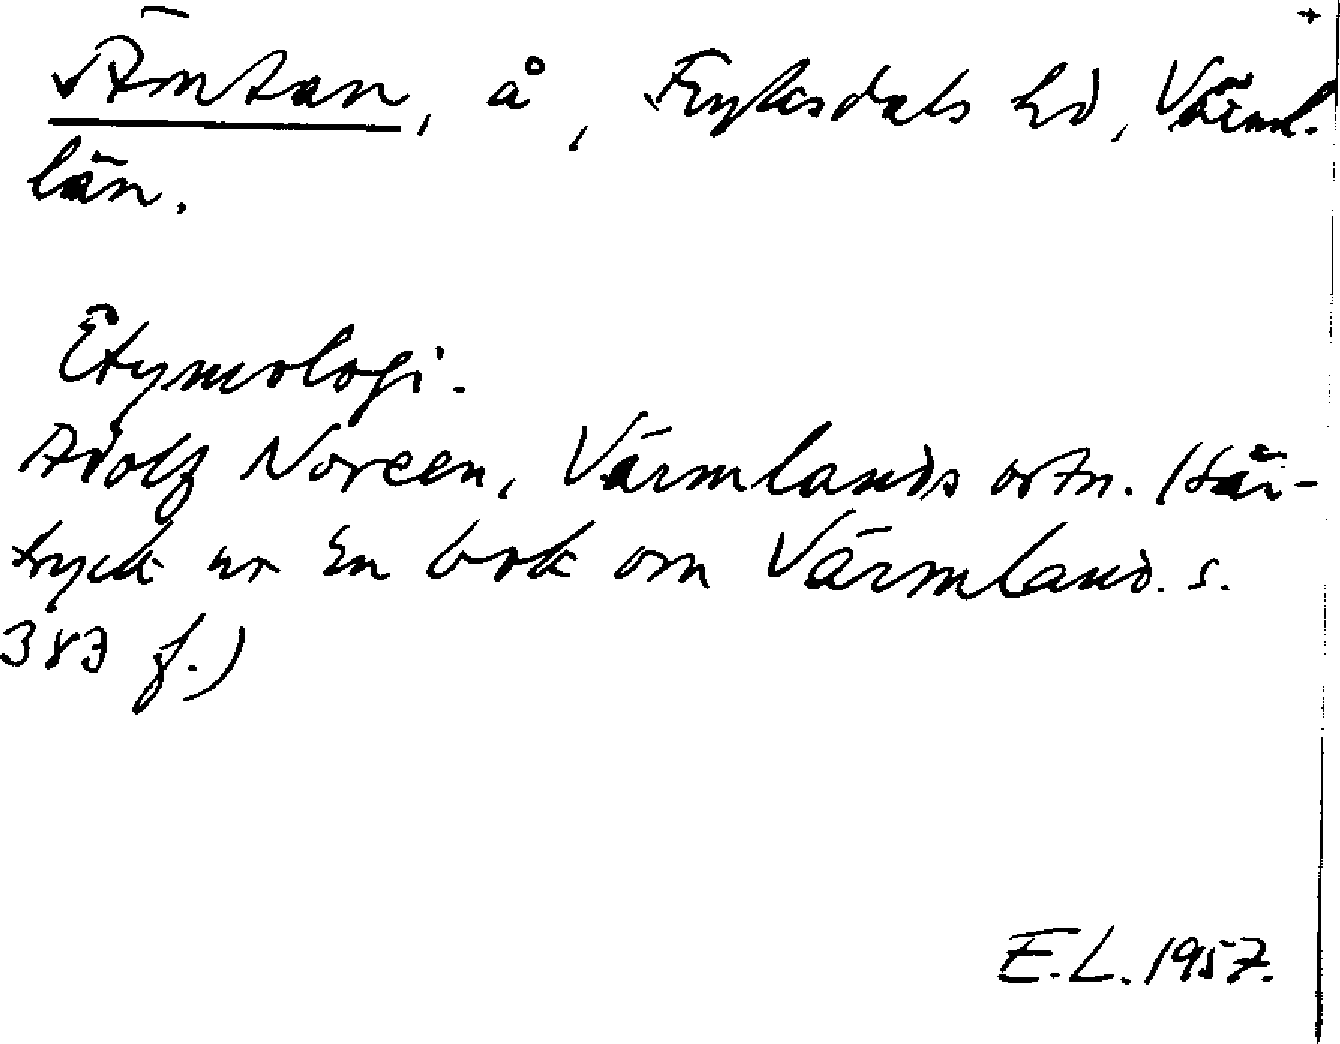 +
Ämtan, å, Fryksdals hd, Värml.
län.
Etymologi.
Adolf Noreen, Värmlands ortn. (Sär-
tryck ur En bok om Värmland. s.
383 f.)
E.L. 1957.